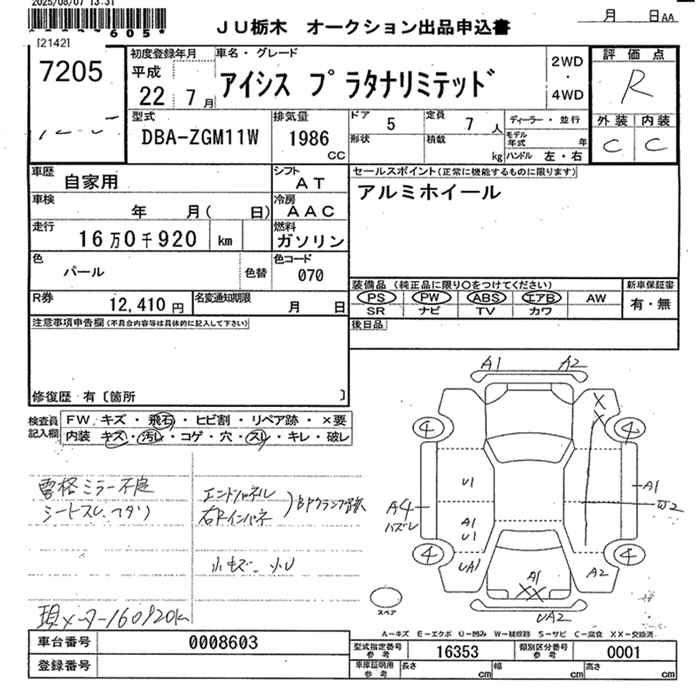 2025/08/07 13:31
月 日 AA
605
[2142]
JU栃木 オークション出品申込書
7205
初度登録年月
平成
22 7 月
車名・グレード
アイシス プラタナリミテッド
2WD
・
4WD
評価点
R
外装 内装
C C
型式
DBA-ZGM11W
排気量
1986
CC
ドア 5
定員 7 人
形状
積載 kg
ディーラー・並行
モデル年式 年
ハンドル 左・右
車歴 自家用
シフト AT
セールスポイント(正常に機能するものに限ります)
アルミホイール
車検 年 月( 日)
冷房 AAC
走行 16万0千920 km
燃料 ガソリン
色 パール
色替
色コード 070
R券 12,410 円
名変通知期限 月 日
装備品 (純正品に限り○をつけてください)
PS PW ABS エアB AW
SR ナビ TV カワ
新車保証書
有・無
後日品
注意事項申告欄(不具合内容等は具体的に記入して下さい)
修復歴 有〔箇所 〕
検査員記入欄
FW キズ・飛石・ヒビ割・リペア跡・×要
内装 キズ・汚レ・コゲ・穴・スレ・キレ・破レ
シートスレ、
エンドパネル
右Rインパネ
小キズ、小U
現メーター160920K
A1 A2
X
X
4 4
U1
A1
U1
A4
A1
W2
4 4
UA1
A1
XX
A2
UA2
スペア
A-キズ E-エクボ U-凹み W-補修跡 S-サビ C-腐食 XX-交換済
車台番号 0008603
登録番号
型式指定番号 参考 16353
類別区分番号 参考 0001
車庫証明用 参考 長さ cm 幅 cm 高さ cm